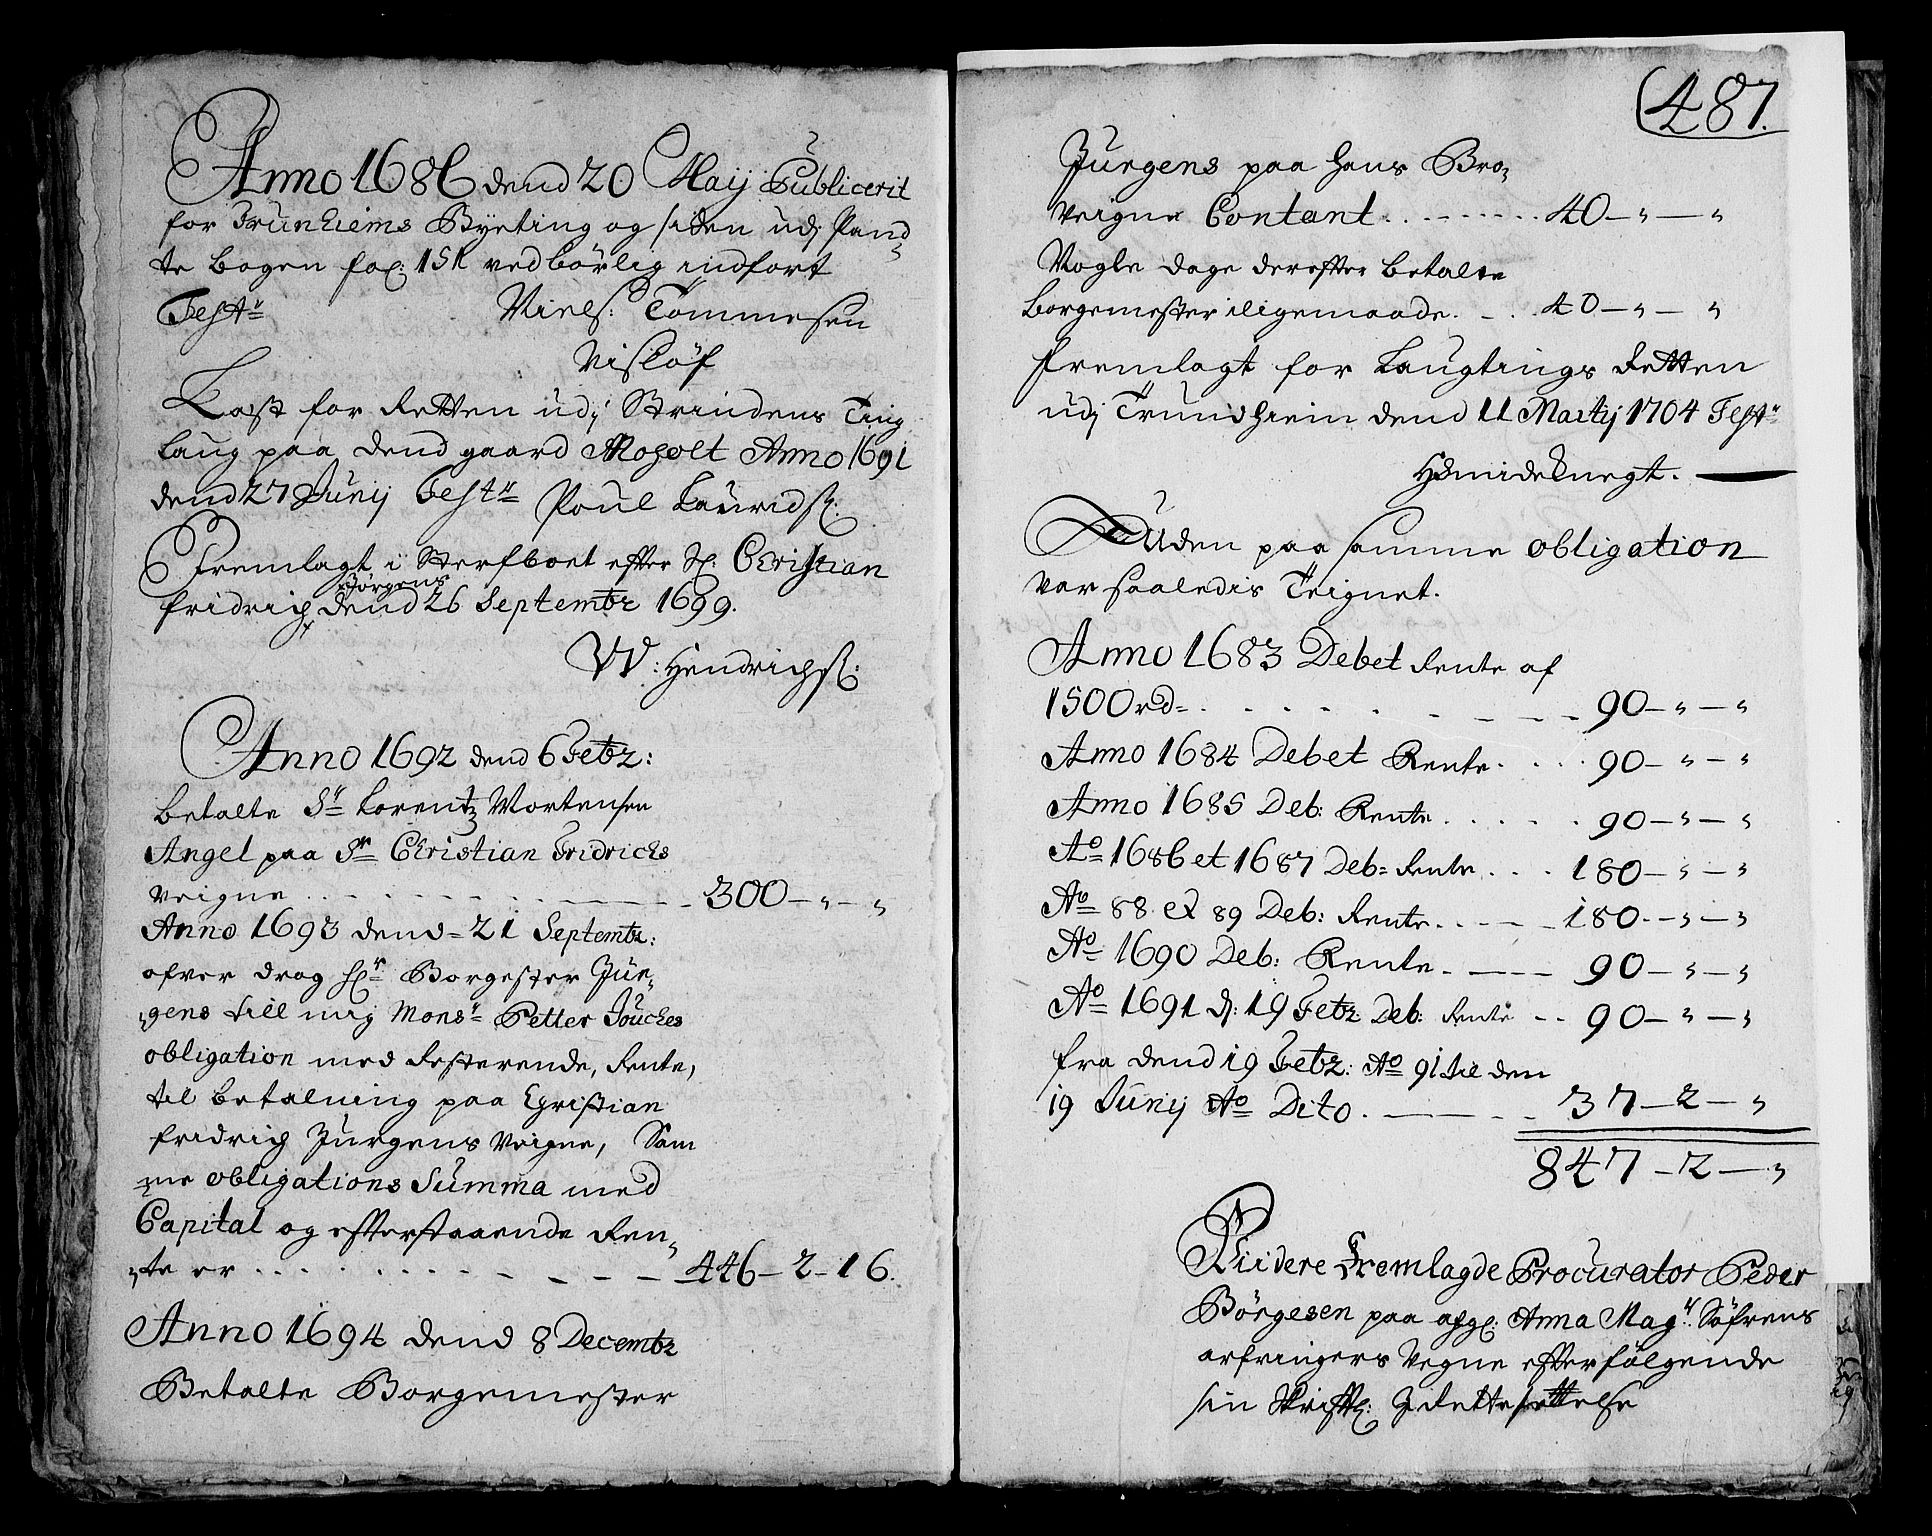 Anno 1686 dend 20 Maij Publicerit
for Trunhiems Byeting og siden udj Pand
te bogen fol: 151 vedbörlig indfört
Test: Niels: Tommesen
Visløf
Læst for Retten udj Strindens Ting
laug paa dend gaard Moholt Anno 1691
dend 27 Junij Test: Poul Lauridsn:
Fremlagt i Sterfboet efter Sl: Christian
fridrich Jørgens dend 26 Septembr 1699.
W: Hendrichsn:
Anno 1692 dend 6 Febr:
betalte Sr Lorentz Mortensen
Angel paa Sr Christian Fridrichs
veigne 300 - " - "
Anno 1693 dend 21 Septembr:
ofver drog hr Borgester Jür,
,gens till mig Mons: Petter Jouches
obligation med Resterende, Rente,
til betalning paa Christian
fridrich Jurgens veigne, Sam
me obligations Summa med
Capital og efterstaaende Ren,
,te er 446 - 2 - 16.
Anno 1694 dend 8 Decembr
Betalte Borgemester
487.
Jurgens paa hans Bro,
veigne Contant 40 - " - "
Nogle dage derefter betalte
borgemester iligemaade 40 - " - "
fremlagt for Laugtings Retten
udj Trundhiem dend 11 Martij 1704 Test:
HSmideknegt.
Uden paa samme obligation
var saaledis Teignet.
Anno 1683 Debet Rente af
1500 rd 90 - " - "
Anno 1684 Debet Rente 90 - " - "
Anno 1685 Deb: Rente 90 - " - "
Ao 1686 et 1687 Deb: Rente 180 - " - "
Ao 88 et 89 Deb: Rente 180 - " - "
Ao 1690 Deb: Rente 90 - " - "
Ao 1691 d: 19 Febr Deb: Rente 90 - " - "
fra dend 19 Febr: Ao 91 til den
19 Junij Ao Dito 37 - 2 - "
847 - 2 - "
Viidere Fremlagde Procurator Peder
Börgesen paa afgl: Anna Mag: Söfrens
arfvingers Vegne efterfölgende
sin Skriftl: I rettesettelse